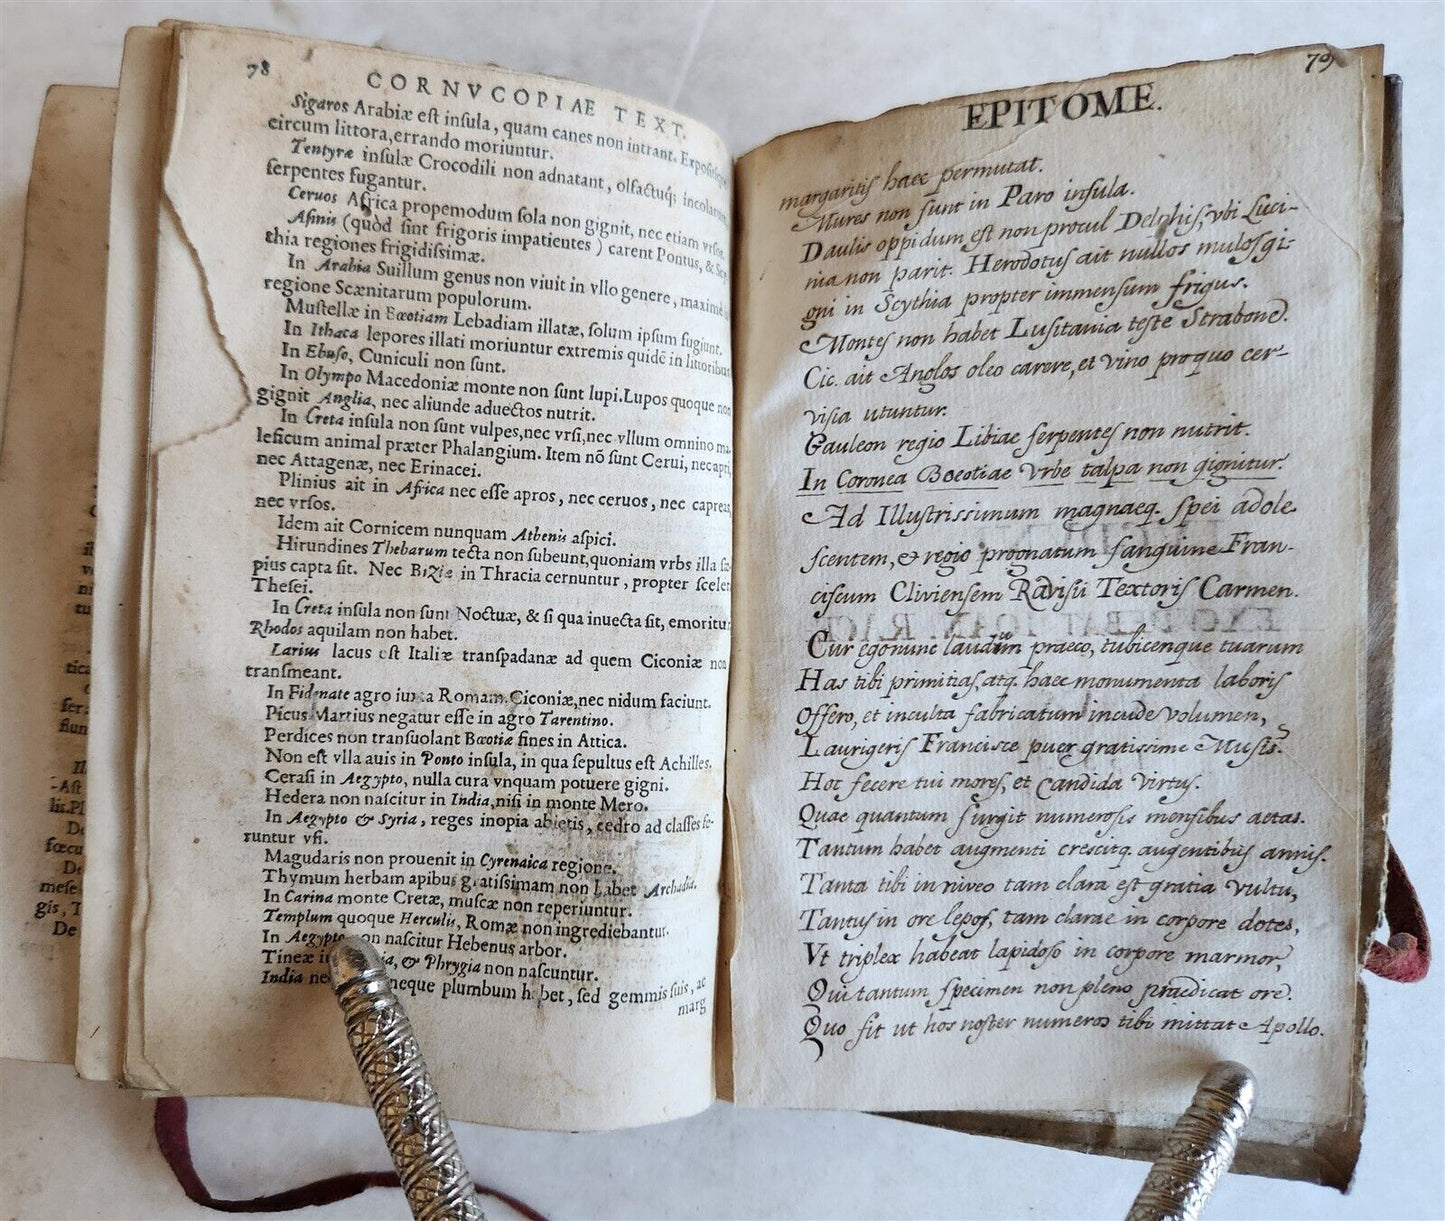 78
CORNVCOPIAE TEXT.
Sigaros Arabiæ eſt inſula, quam canes non intrant. Expoſitique
circum littora, errando moriuntur.
Tentyræ inſulæ Crocodili non adnatant, olfactuq; incolarum
ſerpentes fugantur.
Ceruos Africa propemodum ſola non gignit, nec etiam vrſos.
Aſinis (quòd ſint frigoris impatientes) carent Pontus, & Scy
thia regiones frigidiſſimæ.
In Arabia Suillum genus non viuit in vllo genere, maximè in
regione Scænitarum populorum.
Muſtellæ in Bœotiam Lebadiam illatæ, ſolum ipſum fugiunt.
In Ithaca lepores illati moriuntur extremis quidē in littoribus
In Ebuſo, Cuniculi non ſunt.
In Olympo Macedoniæ monte non ſunt lupi. Lupos quoque non
gignit Anglia, nec aliunde aduectos nutrit.
In Creta inſula non ſunt vulpes, nec vrſi, nec vllum omnino ma
leficum animal præter Phalangium. Item nō ſunt Cerui, nec apri,
nec Attagenæ, nec Erinacei.
Plinius ait in Africa nec eſſe apros, nec ceruos, nec capreas,
nec vrſos.
Idem ait Cornicem nunquam Athenis aſpici.
Hirundines Thebarum tecta non ſubeunt, quoniam vrbs illa ſæ
pius capta ſit. Nec Bizię in Thracia cernuntur, propter ſcelera
Theſei.
In Creta inſula non ſunt Noctuæ, & ſi qua inuecta ſit, emoritur
Rhodos aquilam non habet.
Larius lacus eſt Italiæ tranſpadanæ ad quem Ciconiæ non
tranſmeant.
In Fidenate agro iuxta Romam Ciconiæ, nec nidum faciunt.
Picus Martius negatur eſſe in agro Tarentino.
Perdices non tranſuolant Bœotiæ fines in Attica.
Non eſt vlla auis in Ponto inſula, in qua ſepultus eſt Achilles.
Ceraſi in Aegypto, nulla cura vnquam potuere gigni.
Hedera non naſcitur in India, niſi in monte Mero.
In Aegypto & Syria, reges inopia abietis, cedro ad claſſes fe-
runtur vſi.
Magudaris non prouenit in Cyrenaica regione.
Thymum herbam apibus gratiſſimam non habet Archadia.
In Carina monte Cretæ, muſcæ non reperiuntur.
Templum quoque Herculis, Romæ non ingrediebantur.
In Aegypto non naſcitur Hebenus arbor.
Tineæ & Phrygia non naſcuntur.
India neque plumbum habet, ſed gemmis ſuis, ac
marg
79
EPITOME.
margaritiſ haec permutat.
Mures non ſunt in Paro inſula.
Daulis oppidum eſt non procul Delphiſ, vbi Luci-
nia non parit. Herodotus ait nullos muloſ gi-
gni in Scythia propter immenſum frigus.
Monteſ non habet Luſitania teſte Strabone.
Cic. ait Anglos oleo carere, et vino pro quo cer-
viſia utuntur.
Gauleon regio Libiae ſerpenteſ non nutrit.
In Coronea Boeotiae vrbe talpa non gignitur.
Ad Illuſtrissimum magnaeq. ſpei adole-
ſcentem, & regio prognatum ſanguine Fran-
ciſcum Clivienſem Raviſii Textoriſ Carmen.
Cur ego nunc laudum praeco, tubicenque tuarum
Has tibi primitiaſ, atq. haec monumenta laboriſ
Offero, et inculta fabricatum incude volumen,
Laurigeriſ Franciſce puer gratissime Musis?
Hoc fecere tui moreſ, et candida virtus.
Quae quantum ſurgit numerosis menſibus aetas.
Tantum habet augmenti creſcitq. augentibus annis.
Tanta tibi in niveo tam clara eſt gratia vultu,
Tantus in ore lepoſ, tam clarae in corpore dotes,
Vt triplex habeat lapidoſo in corpore marmor,
Qui tantum ſpecimen non pleno praedicat ore.
Quo fit ut hos noſter numeros tibi mittat Apollo.